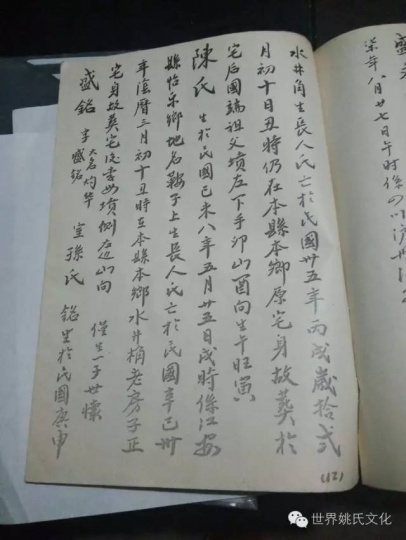 水井角生長人氏亡於民國卅五年丙戌歲拾弍
月初十日丑時仍在本縣本鄉原宅身故葬於
宅后國瑞祖父墳左下手卯山酉向生午旺寅
陳氏 生於民國己未八年五月廿五日戌時係江安
縣怡樂鄉地名鞍子上生長人氏亡於民國辛巳卅
年陰曆三月初十丑時在本縣本鄉水井桷老房子正
宅身故葬宅后 墳側后山向
盛銘 字盛銘 大名灼华 室孫氏 僅生一子世懷
銘生於民國庚申
柒年八月廿七日午時係四川
(12)
世界姚氏文化